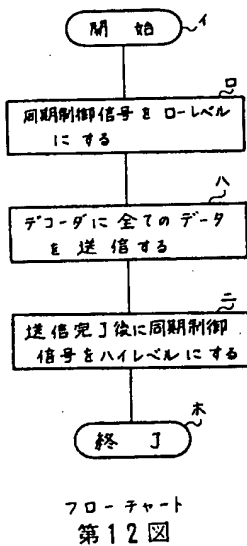 開始
イ
ロ
同期制御信号をローレベル
にする
ハ
デコーダに全てのデータ
を送信する
ニ
送信完了後に同期制御
信号をハイレベルにする
ホ
終了
フローチャート
第12図